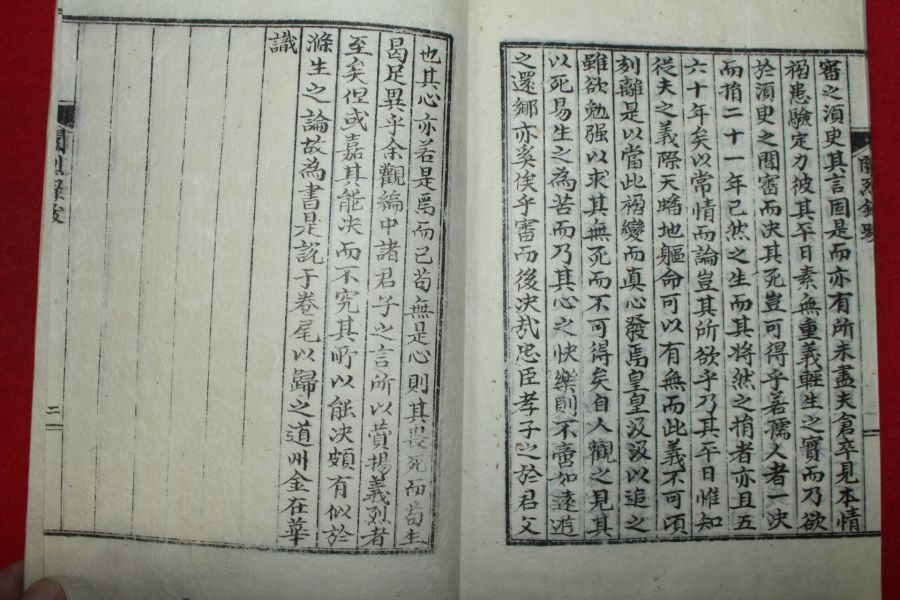 審之須史其言固是而亦有所未盡夫倉卒見本情
禍患驗定力彼其平日素無重義軽生之實而乃欲
於須史之間審而决其死豈可得乎若孺人者一决
而捐二十一年已然之生而其将然之捐者亦且五
六十年矣以常情而論豈其所欲乎乃其平日惟知
從夫之義際天蟠地軀命可以有無而此義不可頃
刻離是以當此禍變而真心發焉皇皇汲汲以追之
雖欲勉强以求其無死而不可得矣自人觀之見其
以死易生之為苦而乃其心之快樂則不啻如遠遊
之還鄉亦奚俟乎審而後决㢤忠臣孝子之於君父
也其心亦若是焉而已苟無是心則其畏死而苟生
曷足異乎余觀編中諸君子之言所以賛揚義烈者
至矣但或嘉其能决而不究其所以能决頗有似於
滌生之論故為書是説于卷尾以歸之道州金在華
識
二